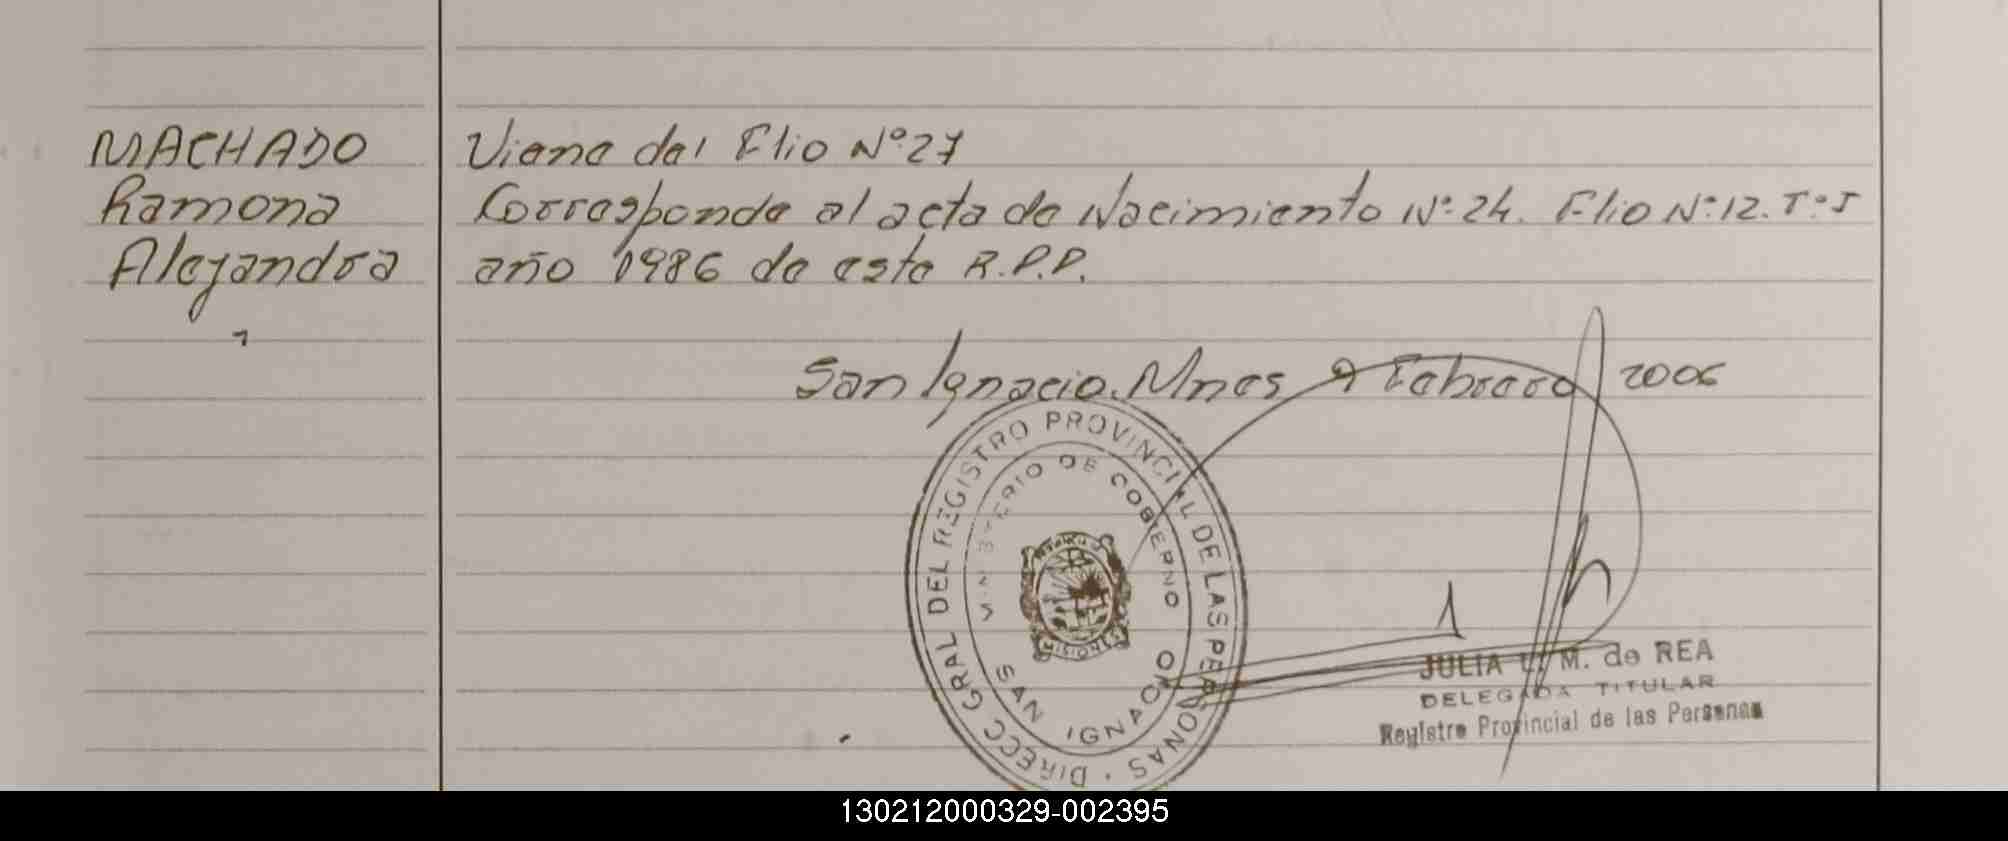 MACHADO
Ramona
Alejandra
Viene del Flio Nº 27
Corresponde al acta de Nacimiento Nº 24. Flio Nº 12. Tº I
año 1986 de este R.P.P.
San Ignacio. Mnes 9 Febrero 2006
DIRECC GRAL DEL REGISTRO PROVINCIAL DE LAS PERSONAS
MINISTERIO DE GOBIERNO
MISIONES
SAN IGNACIO
JULIA M. de REA
DELEGADA TITULAR
Registro Provincial de las Personas
130212000329-002395